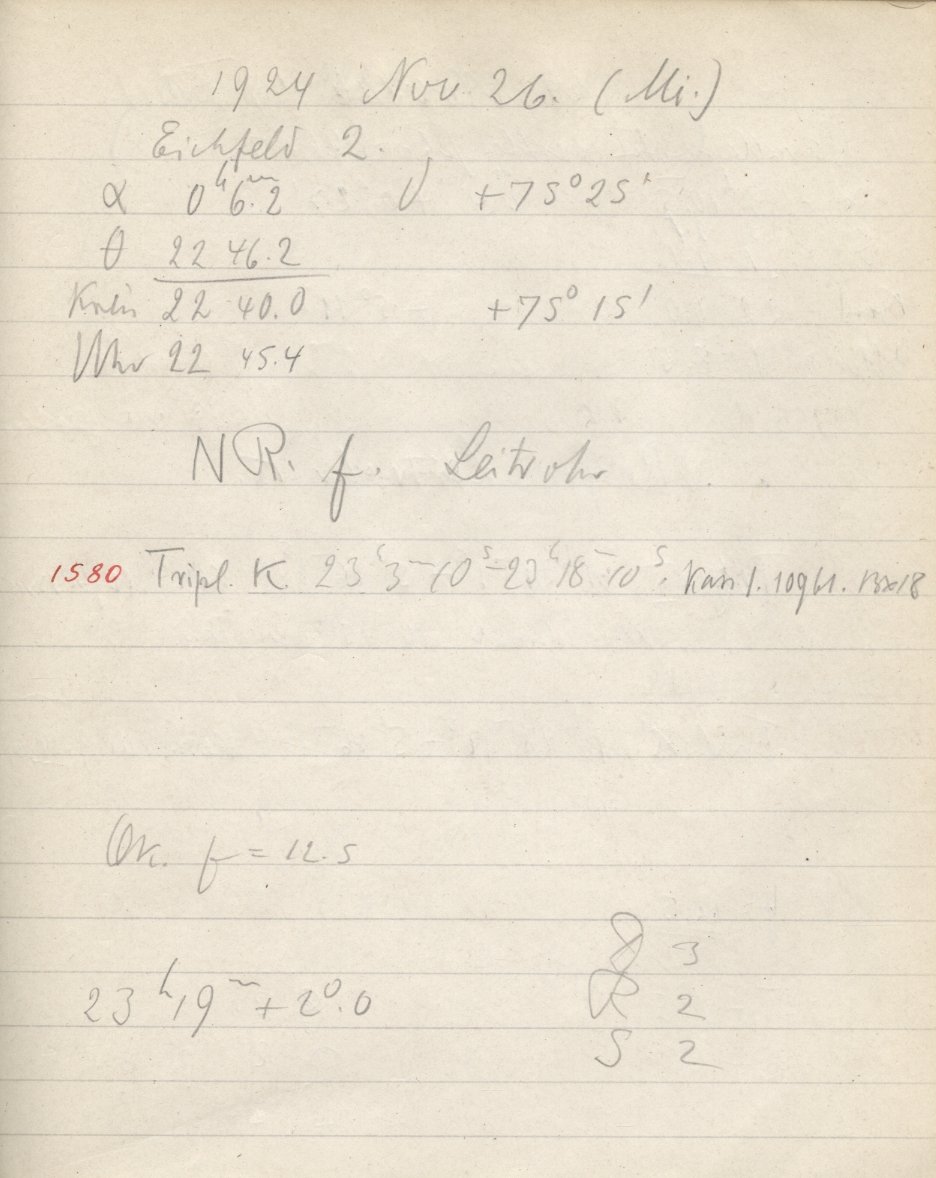 1924 Nov 26. (Mi.)
Eichfeld 2.
α 0ʰ6ᵐ.2 δ +75°25'
θ 22 46.2
Kreis 22 40.0 +75° 15'
Uhr 22 45.4
NR. f. Leitrohr
1580 Tripl. K 23ʰ3ᵐ10ˢ-23ʰ18ᵐ10ˢ. Kass 1. 13x18
Ok. f = 12.5
23ʰ19ᵐ +2°.0
3
R 2
S 2